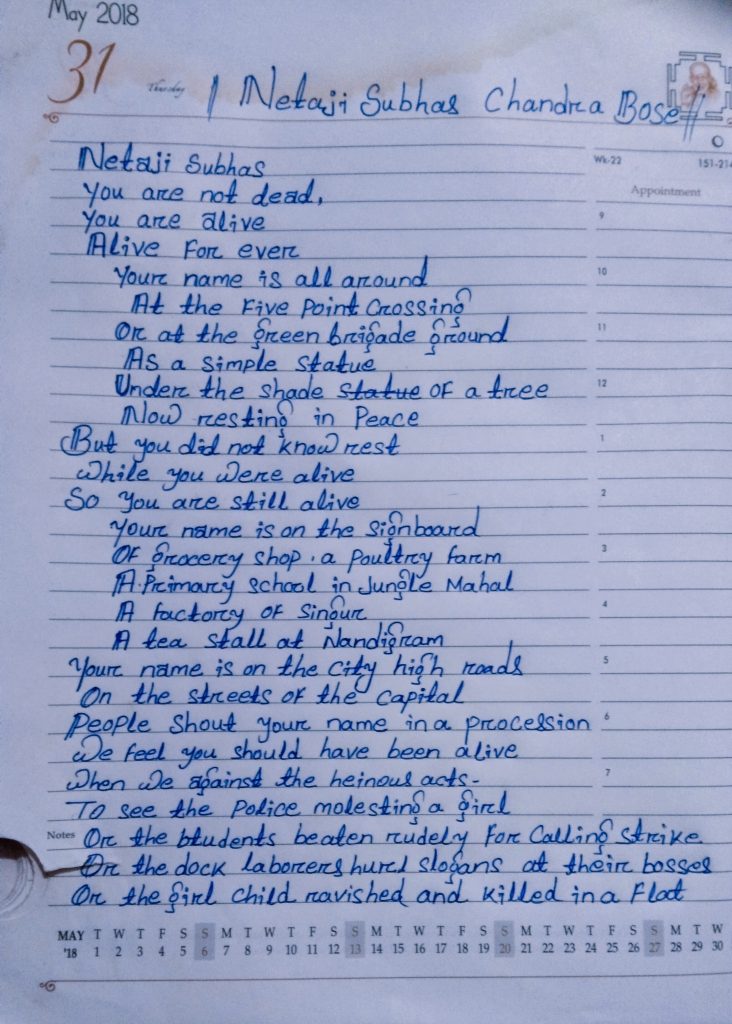 May 2018
31
Thursday
Netaji Subhas Chandra Bose
Wk-22
151-214
Appointment
Netaji Subhas
You are not dead,
You are alive
9
Alive For ever
Your name is all around
10
At the Five Point Crossing
Or at the green brigade ground
11
As a simple statue
Under the shade statue of a tree
12
Now resting in Peace
But you did not know rest
1
While you were alive
So you are still alive
2
Your name is on the signboard
Of grocery shop, a poultry farm
3
A Primary school in Jungle Mahal
A factory of Singur
4
A tea stall at Nandigram
Your name is on the city high roads
5
On the streets of the capital
People shout your name in a procession
6
We feel you should have been alive
When we against the heinous acts-
7
To see the Police molesting a girl
Notes
Or the btudents beaten rudely for calling strike
Or the dock laborers hurl slogans at their bosses
Or the girl child ravished and killed in a flat
MAY T W T F S S M T W T F S S M T W T F S S M T W T F S S M T W
'18 1 2 3 4 5 6 7 8 9 10 11 12 13 14 15 16 17 18 19 20 21 22 23 24 25 26 27 28 29 30